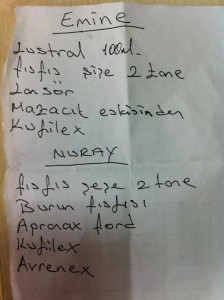 EMİNE
Lustral 100ml.
fısfıs şişe 2 tane
Lansör
Magacit eskisinden
Kufilex
NURAY
fısfıs şeşe 2 tane
Burun fısfısı
Apronax ford
Kufilex
Avrenex